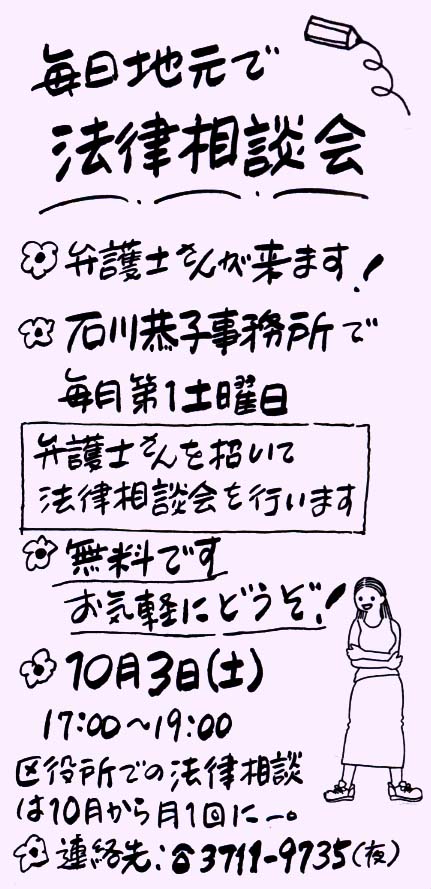 毎日地元で
法律相談会
弁護士さんが来ます!
石川恭子事務所で
毎月第1土曜日
弁護士さんを招いて
法律相談会を行います
無料です
お気軽にどうぞ!
10月3日(土)
17:00〜19:00
区役所での法律相談
は10月から月1回に―。
連絡先:☎3711-9735(夜)